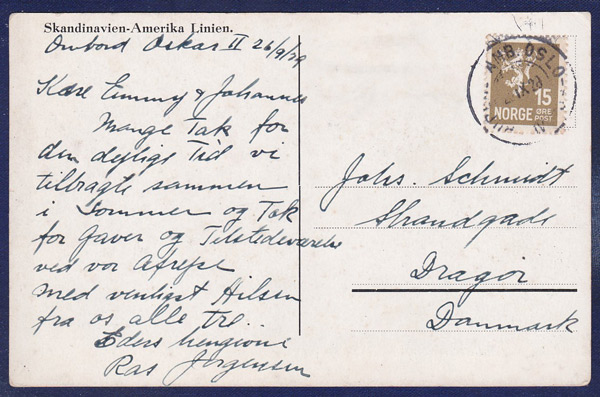 Skandinavien-Amerika Linien.
Onbord Oskar II 26/9/29
Kære Emmy & Johannes
Mange Tak for
den dejlige Tid vi
tilbragte sammen
i Sommer og Tak
for Gaver og Tilstedeværelse
ved vor Afrejse
med venligst Hilsen
fra os alle tre.
Eders hengivne
Ras Jørgensen
OSLO
15
NORGE ØRE
POST
Johs. Schmidt
Strandgade
Dragør
Danmark